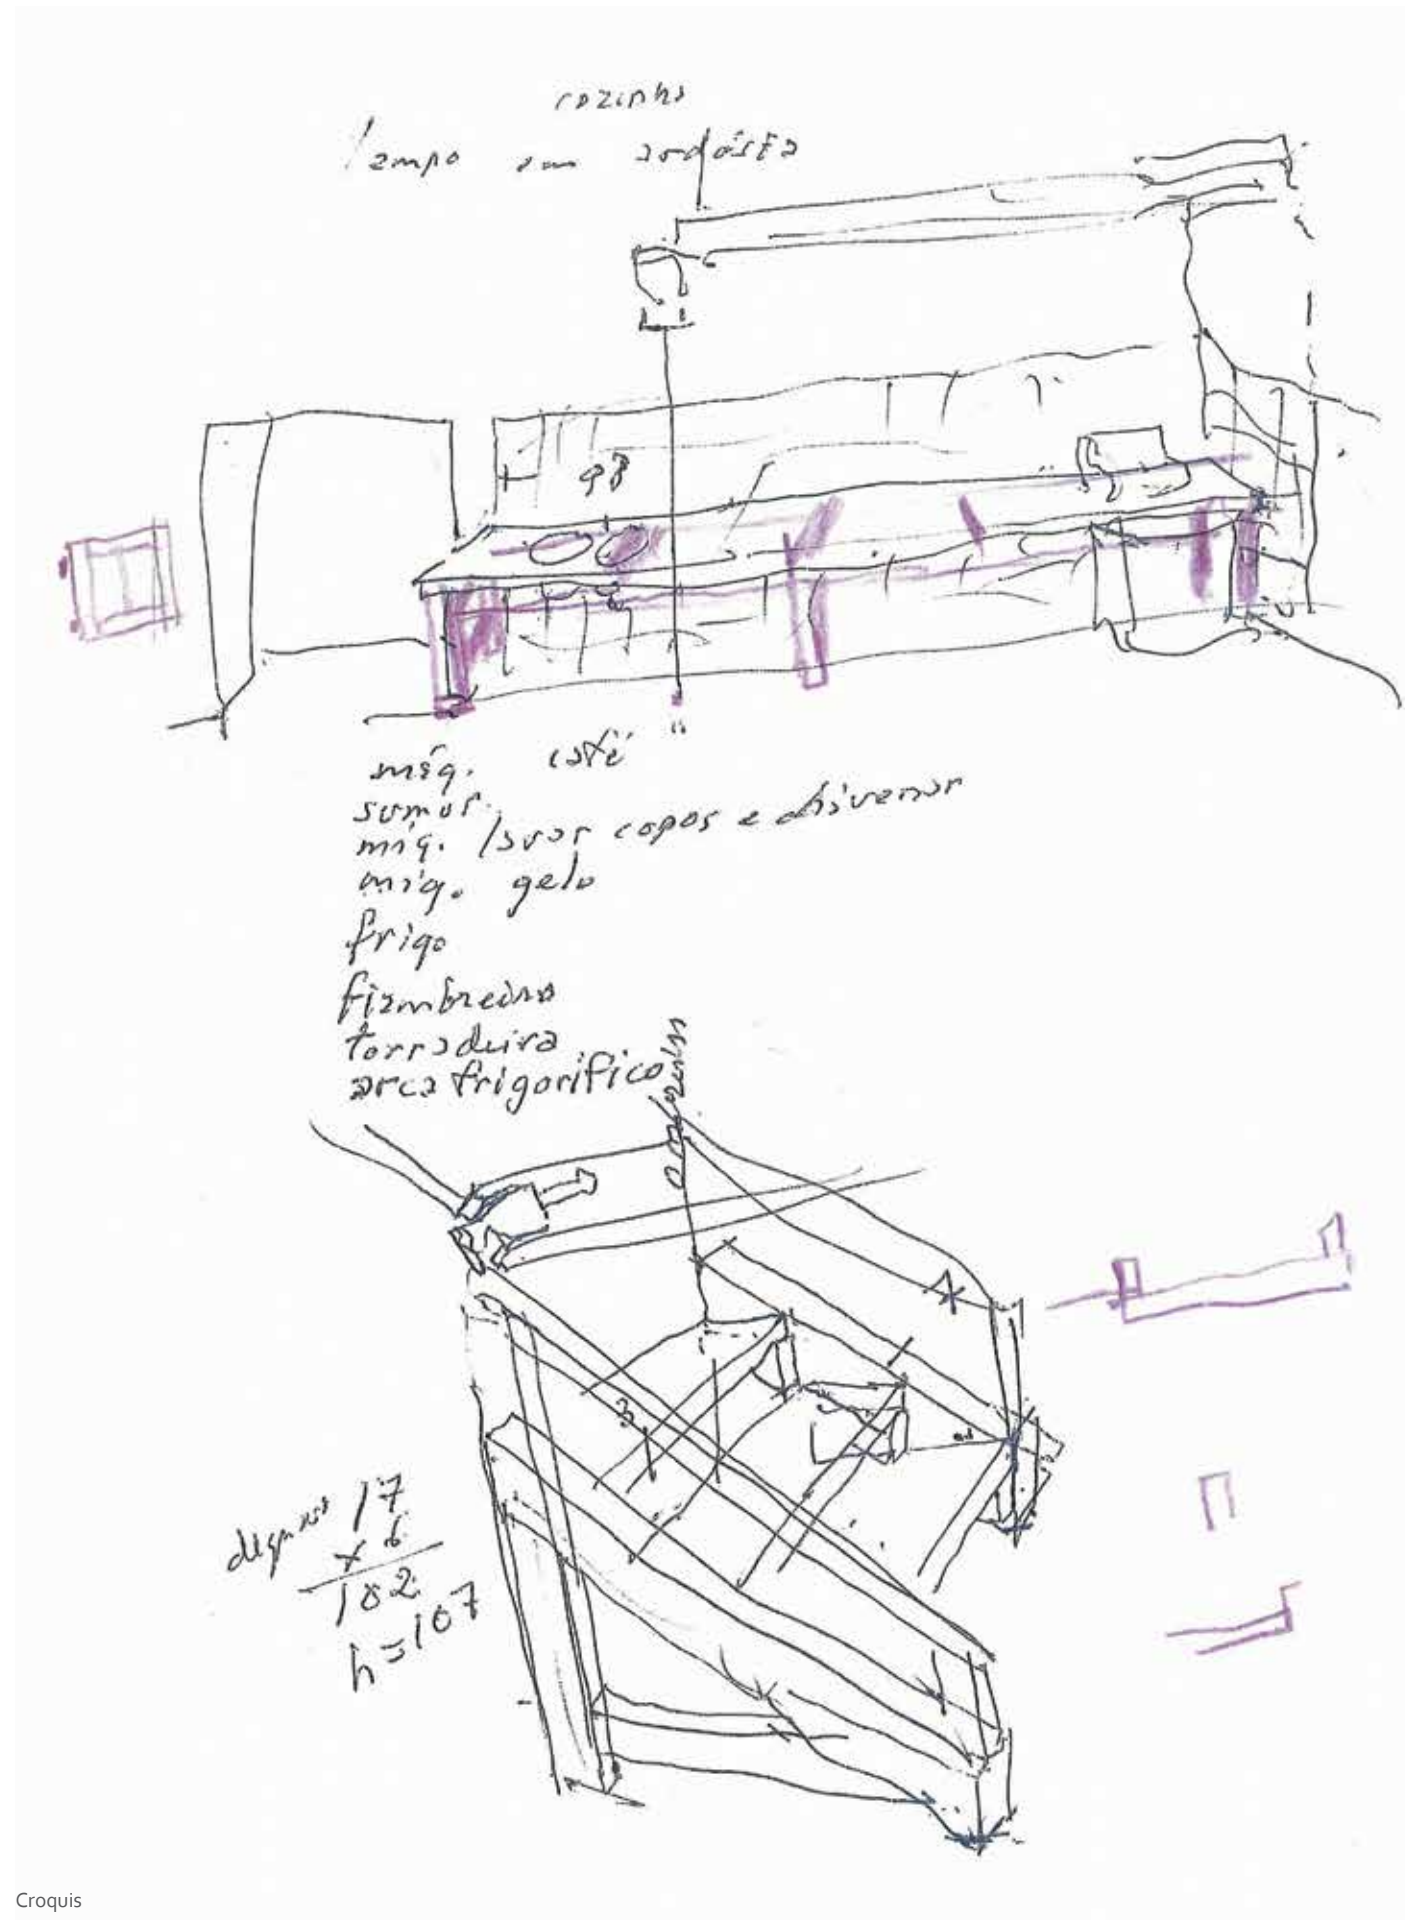 cozinha
tampo em ardósia
98
máq. café
sumos
máq. lavar copos e
máq. gelo
frigo
fiambreira
torradeira
arca frigorífico
cozinha
degraus 17
x 6
102
h=107
Croquis